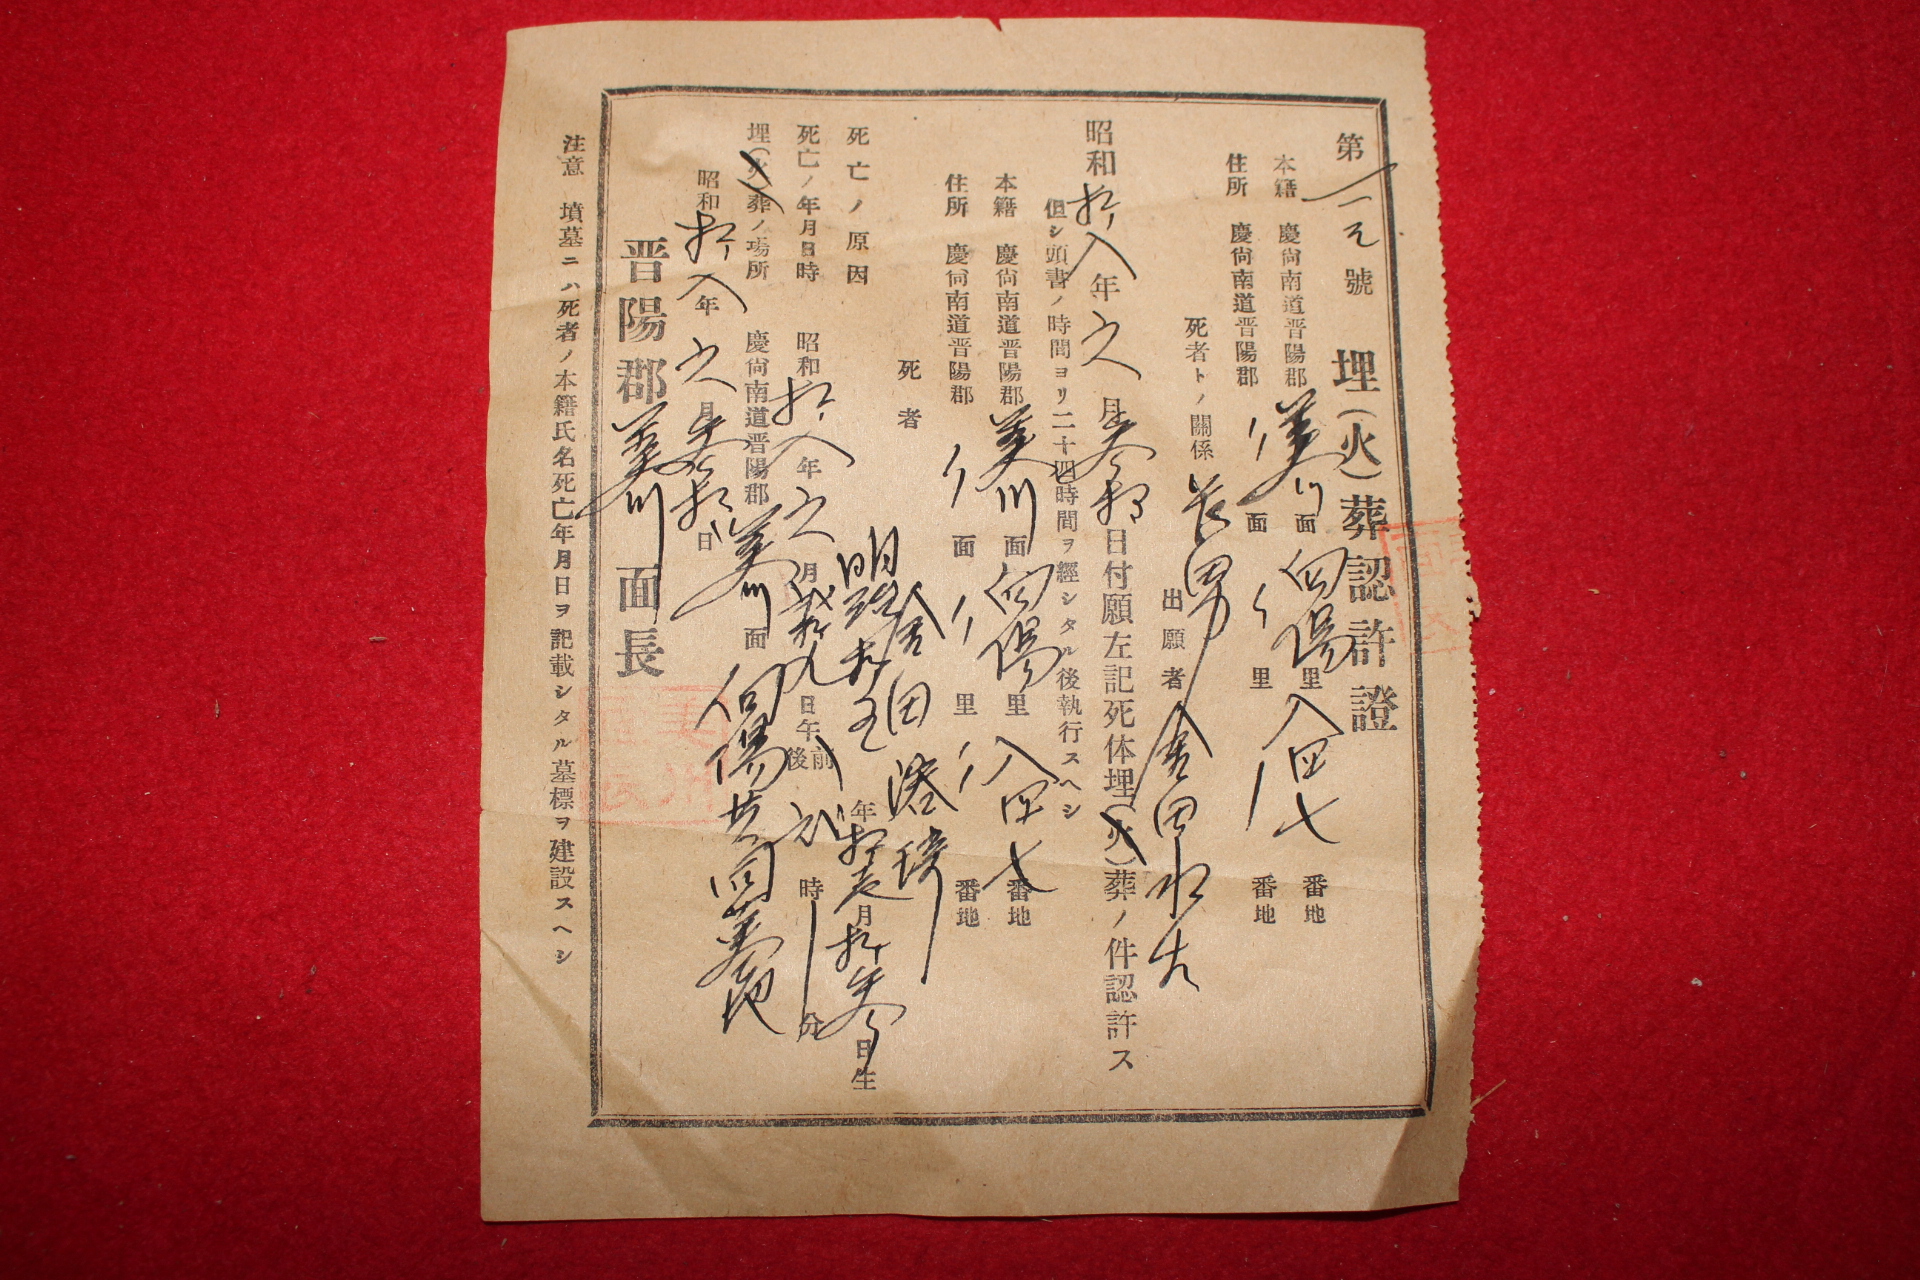 第 一二 號 埋(火)葬認許證
本籍 慶尙南道晋陽郡 美川 面 向陽 里 八四七 番地
住所 慶尙南道晋陽郡 〃 面 〃 里 〃 番地
死者トノ關係 長男
出願者 金田
昭和 拾八 年 六 月 参拾 日付願左記死体埋(火)葬ノ件認許ス
但シ頭書ノ時間ヨリ二十四時間ヲ經シタル後執行スヘシ
本籍 慶尙南道晋陽郡 美川 面 向陽 里 八四七 番地
住所 慶尙南道晋陽郡 〃 面 〃 里 〃 番地
死者 金田
明治 年 月 日生
死亡ノ原因
死亡ノ年月日時 昭和 拾八 年 六 月 貳拾九 日午前後 時 分
埋(火)葬ノ場所 慶尙南道晋陽郡 美川 面 向陽共同墓地
昭和 拾八 年 六 月 参拾 日
晋陽郡 美川 面長
注意 墳墓ニハ死者ノ本籍氏名死亡年月日ヲ記載シタル墓標ヲ建設スヘシ